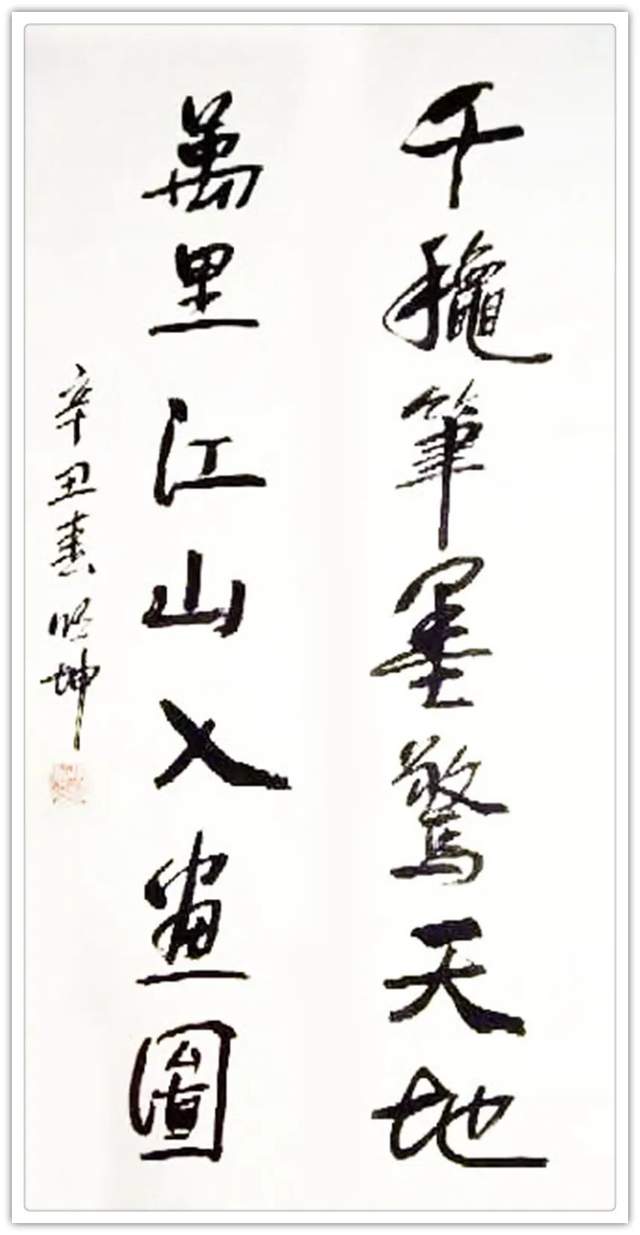 千穐筆墨驚天地
萬里江山入畫圖
辛丑春旼坤